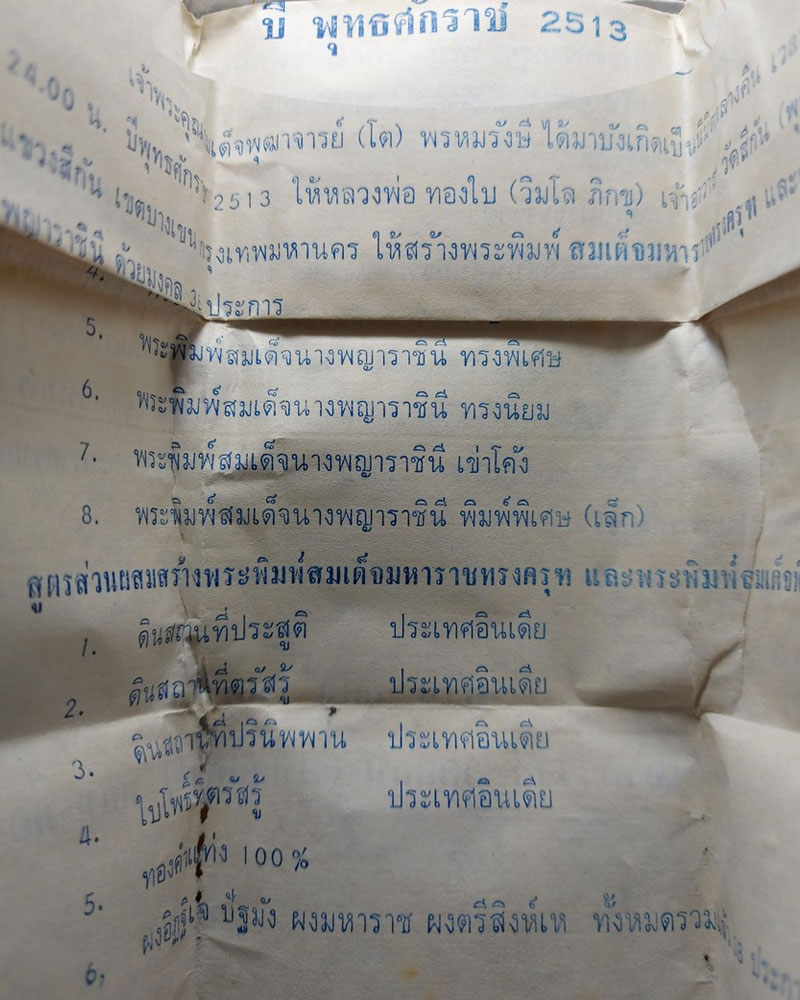 ปี พุทธศักราช 2513
เจ้าพระคุณ เด็จพุฒาจารย์ (โต) พรหมรังษี ได้มาบังเกิดเป็น
24.00 น. ปีพุทธศักร 2513 ให้หลวงพ่อ ทองใบ (วิมโล ภิกขุ) วัดสีกัน
แขวงสีกัน เขตบางเขน กรุงเทพมหานคร ให้สร้างพระพิมพ์ สมเด็จมหาราชทรงครุฑ และ
พญาราชินี ด้วยมงคล ประการ
4.
5. พระพิมพ์สมเด็จนางพญาราชินี ทรงพิเศษ
6. พระพิมพ์สมเด็จนางพญาราชินี ทรงนิยม
7. พระพิมพ์สมเด็จนางพญาราชินี เข่าโค้ง
8. พระพิมพ์สมเด็จนางพญาราชินี พิมพ์พิเศษ (เล็ก)
สูตรส่วนผสมสร้างพระพิมพ์สมเด็จมหาราชทรงครุฑ และพระพิมพ์สมเด็จ
1. ดินสถานที่ประสูติ ประเทศอินเดีย
2. ดินสถานที่ตรัสรู้ ประเทศอินเดีย
3. ดินสถานที่ปรินิพพาน ประเทศอินเดีย
4. ใบโพธิ์ที่ตรัสรู้ ประเทศอินเดีย
5. ทองคำแท่ง 100 %
6, ผงอิฏฐิเจ ปัฐมัง ผงมหาราช ผงตรีสิงห์เห ทั้งหมดรวม